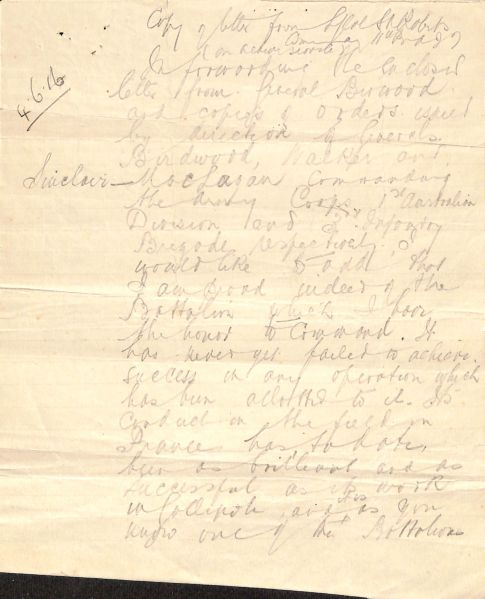 Copy of letter from
on active service Commanding
4.6.16
In forwarding the enclosed
letter from General Birdwood
and copies of orders issued
by direction of Generals
Birdwood, Walker and
Sinclair - MacLagan Commanding
the Army Corps, 1st Australian
Division and Infantry
Brigade respectively, I
would like to add that
I am proud indeed of the
Battalion which I have
the honor to Command. It
has never yet failed to achieve
success in any operation which
has been allotted to it. Its
conduct in the field in
France has to date,
been as brilliant and as
successful as its work
in Gallipoli, and as you
know one of the Battalions